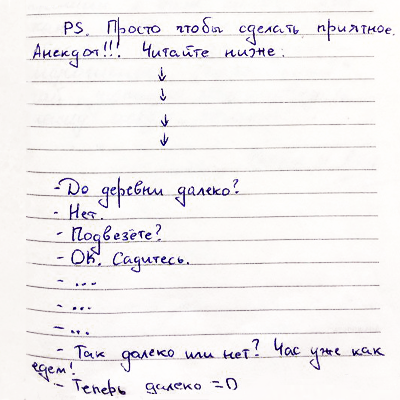 PS. Просто чтобы сделать приятное.
Анекдот!!! Читайте ниже:
↓
↓
↓
↓
- До деревни далеко?
- Нет.
- Подвезёте?
- ОК. Садитесь.
- ...
- ...
- ...
- Так далеко или нет? Час уже как
едем!
- Теперь далеко =D